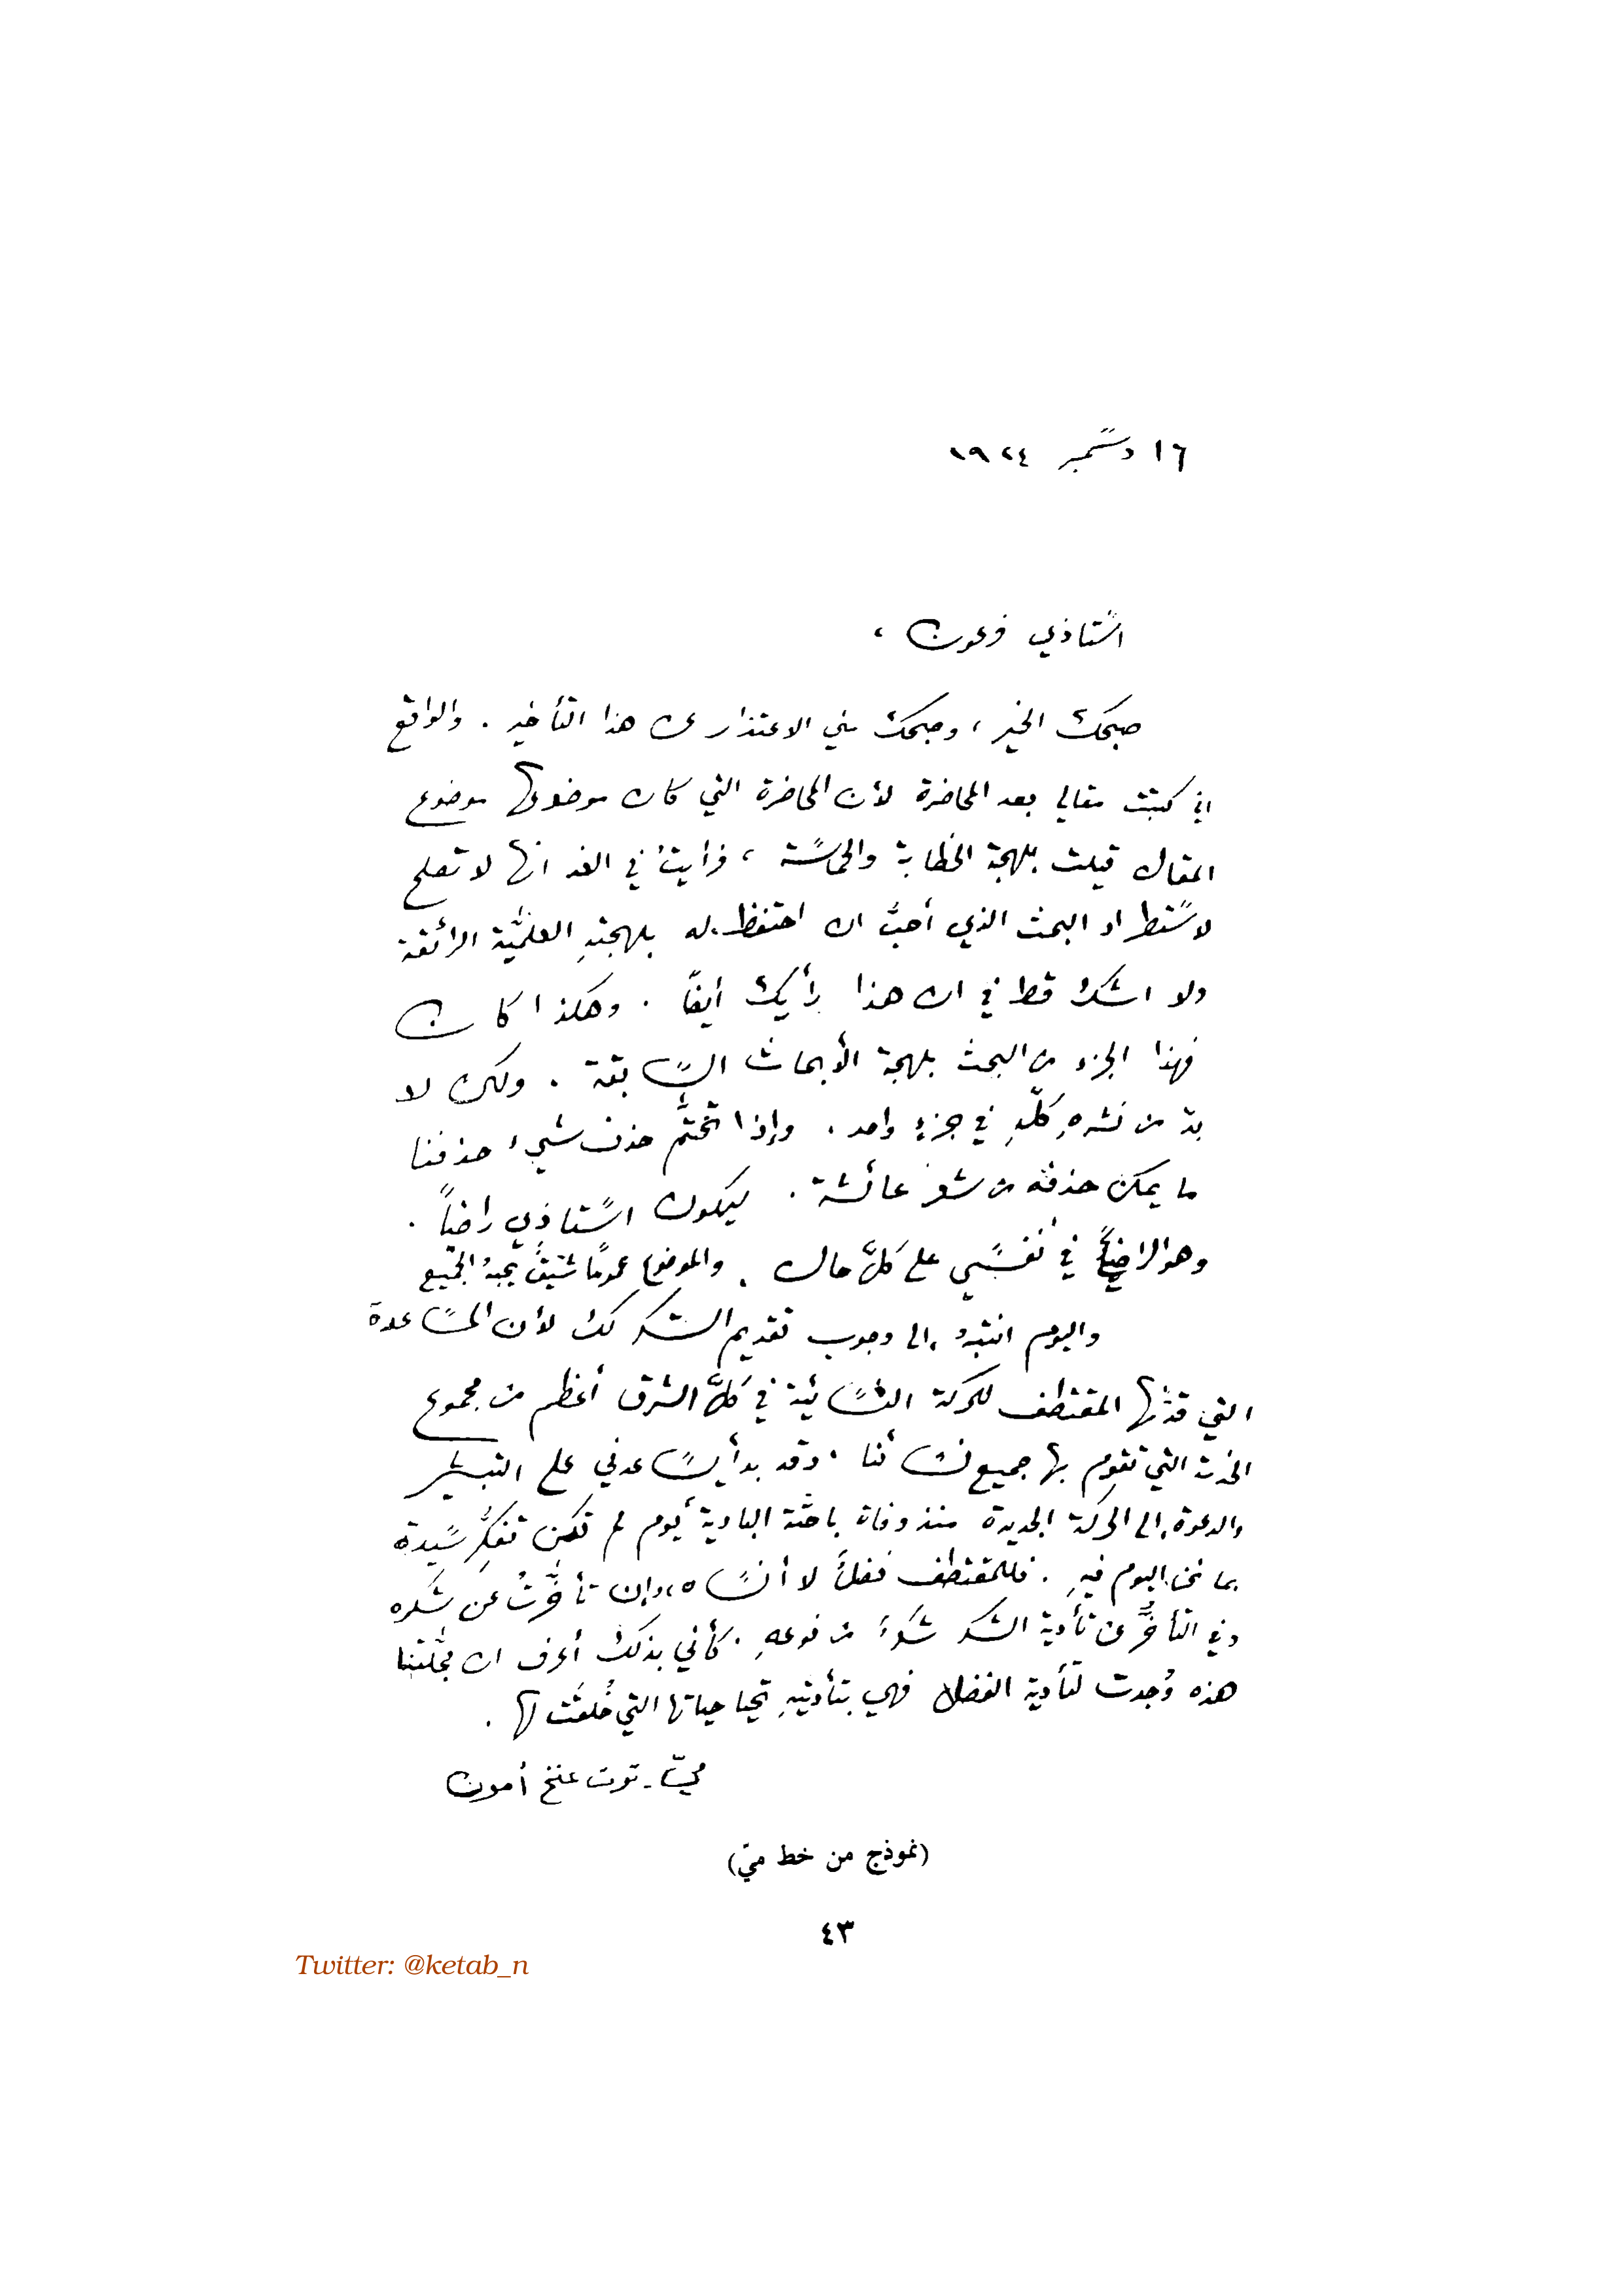 ١٦ دسمبر ١٩٢٤
استاذي فرعون ،
صبحك الخير ، وصبحك مني الاعتذار عن هذا التأخير . والواقع
اني كتبت مقالي بعد المحاضرة لأن المحاضرة التي كان موضوعها موضوع
المقال قيلت بلهجة الخطابة والحماسة ، فرأيت في الغد انها لا تصلح
لاستطراد البحث الذي أحبُّ ان احتفظ له بلهجتهِ العلميَّة الرائقة
ولا اشك قط في ان هذا رأيك أيضاً . وهكذا كان
فهذا الجزء من البحث بلهجة الأبحاث السابقة . ولكن لا
بد من نشرهِ كلّهِ في جزءٍ واحد . وإذا تحتَّم حذف شيء حذفنا
ما يمكن حذفه من شعر عائشة . ليكون استاذي راضياً .
وهو الراضي في نفسي على كلّ حال . والموضوع عموماً شيّق يحبهُ الجميع
واليوم انتبهُ إلى وجوب تقديم الشكر لك لأن المساعدة
التي قدمها المقتطف للحركة النسائية في كلّ الشرق أعظم من مجموع
الخدمة التي تقوم بها جميع نسائنا . وقد بدأ يساعدني على التبشير
والدعوة إلى الحركة الجديدة منذ وفاة باحثة البادية أيوم لم تكن تفكّر سيّدة
بما نحن اليوم فيهِ . فللمقتطف فضلٌ لا أنساه ، وإن تأخَّرتُ عن شكره
وفي التأخُّر عن تأدية الشكر شكرٌ من نوعهِ . كأني بذلك أعرف ان مجلّتنا
هذه وُجدت لتأدية الفضل فهي بتأديتهِ تحيا حياتها التي خُلقت لها .
ميّ - توت عنخ أمون
(نموذج من خط ميّ)
٤٣
Twitter: @ketab_n